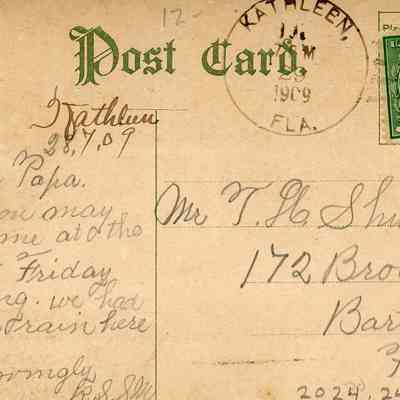 12-
Post Card.
KATHLEEN,
29
1909
FLA.
Kathleen
28, 7, 09
Papa.
may
me at the
Friday
ng. we had
train here
R.S.S.M
Mr T. H Shu
172 Bro
Bar
2024.24